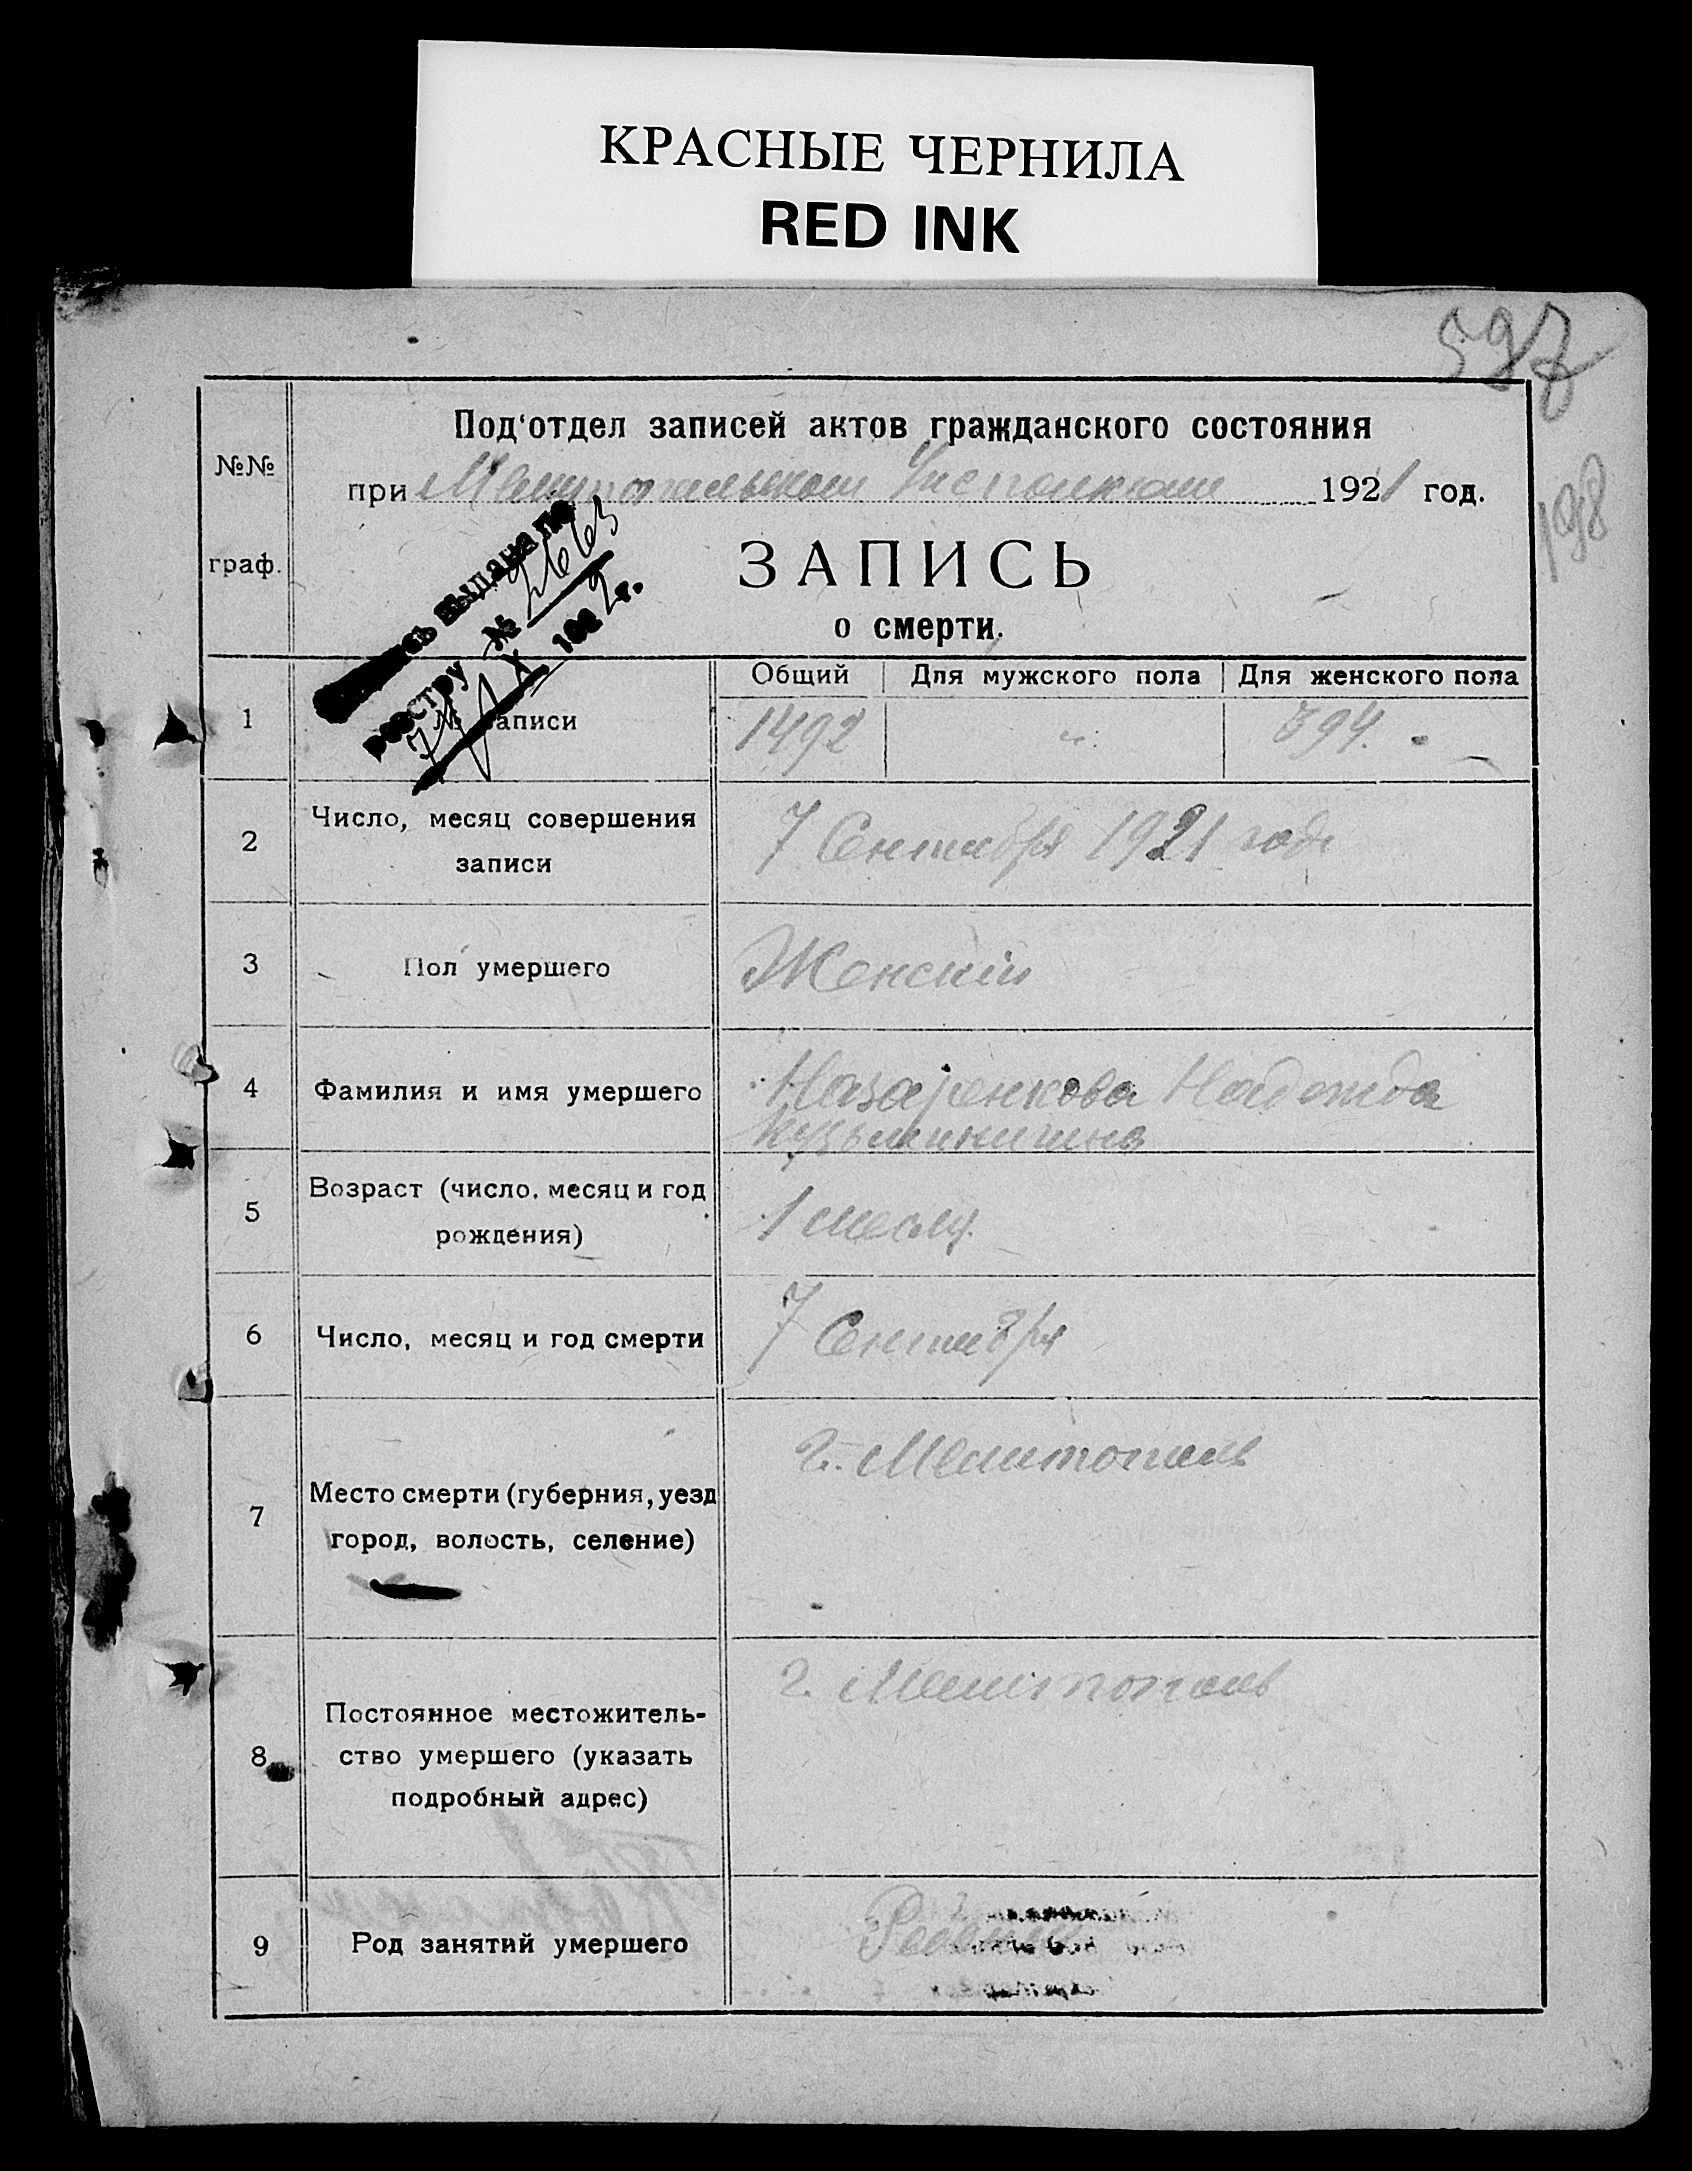 КРАСНЫЕ ЧЕРНИЛА
RED INK
597
198
№№ граф.
Под'отдел записей актов гражданского состояния
при Мелитопольском Исполкоме 1921 год.
ЗАПИСЬ
о смерти.
выдана по
реестру № 2663
X 192 г.
Общий Для мужского пола Для женского пола
1 № записи 1492 " 394.
2 Число, месяц совершения
записи
7 Сентября 1921 года
3 Пол умершего Женский
4 Фамилия и имя умершего Назаренкова Надежда
5 Возраст (число, месяц и год
рождения)
1 месяц.
6 Число, месяц и год смерти 7 Сентября
7 Место смерти (губерния, уезд
город, волость, селение)
г. Мелитополь
8 Постоянное местожитель-
ство умершего (указать
подробный адрес)
г. Мелитополь
9 Род занятий умершего